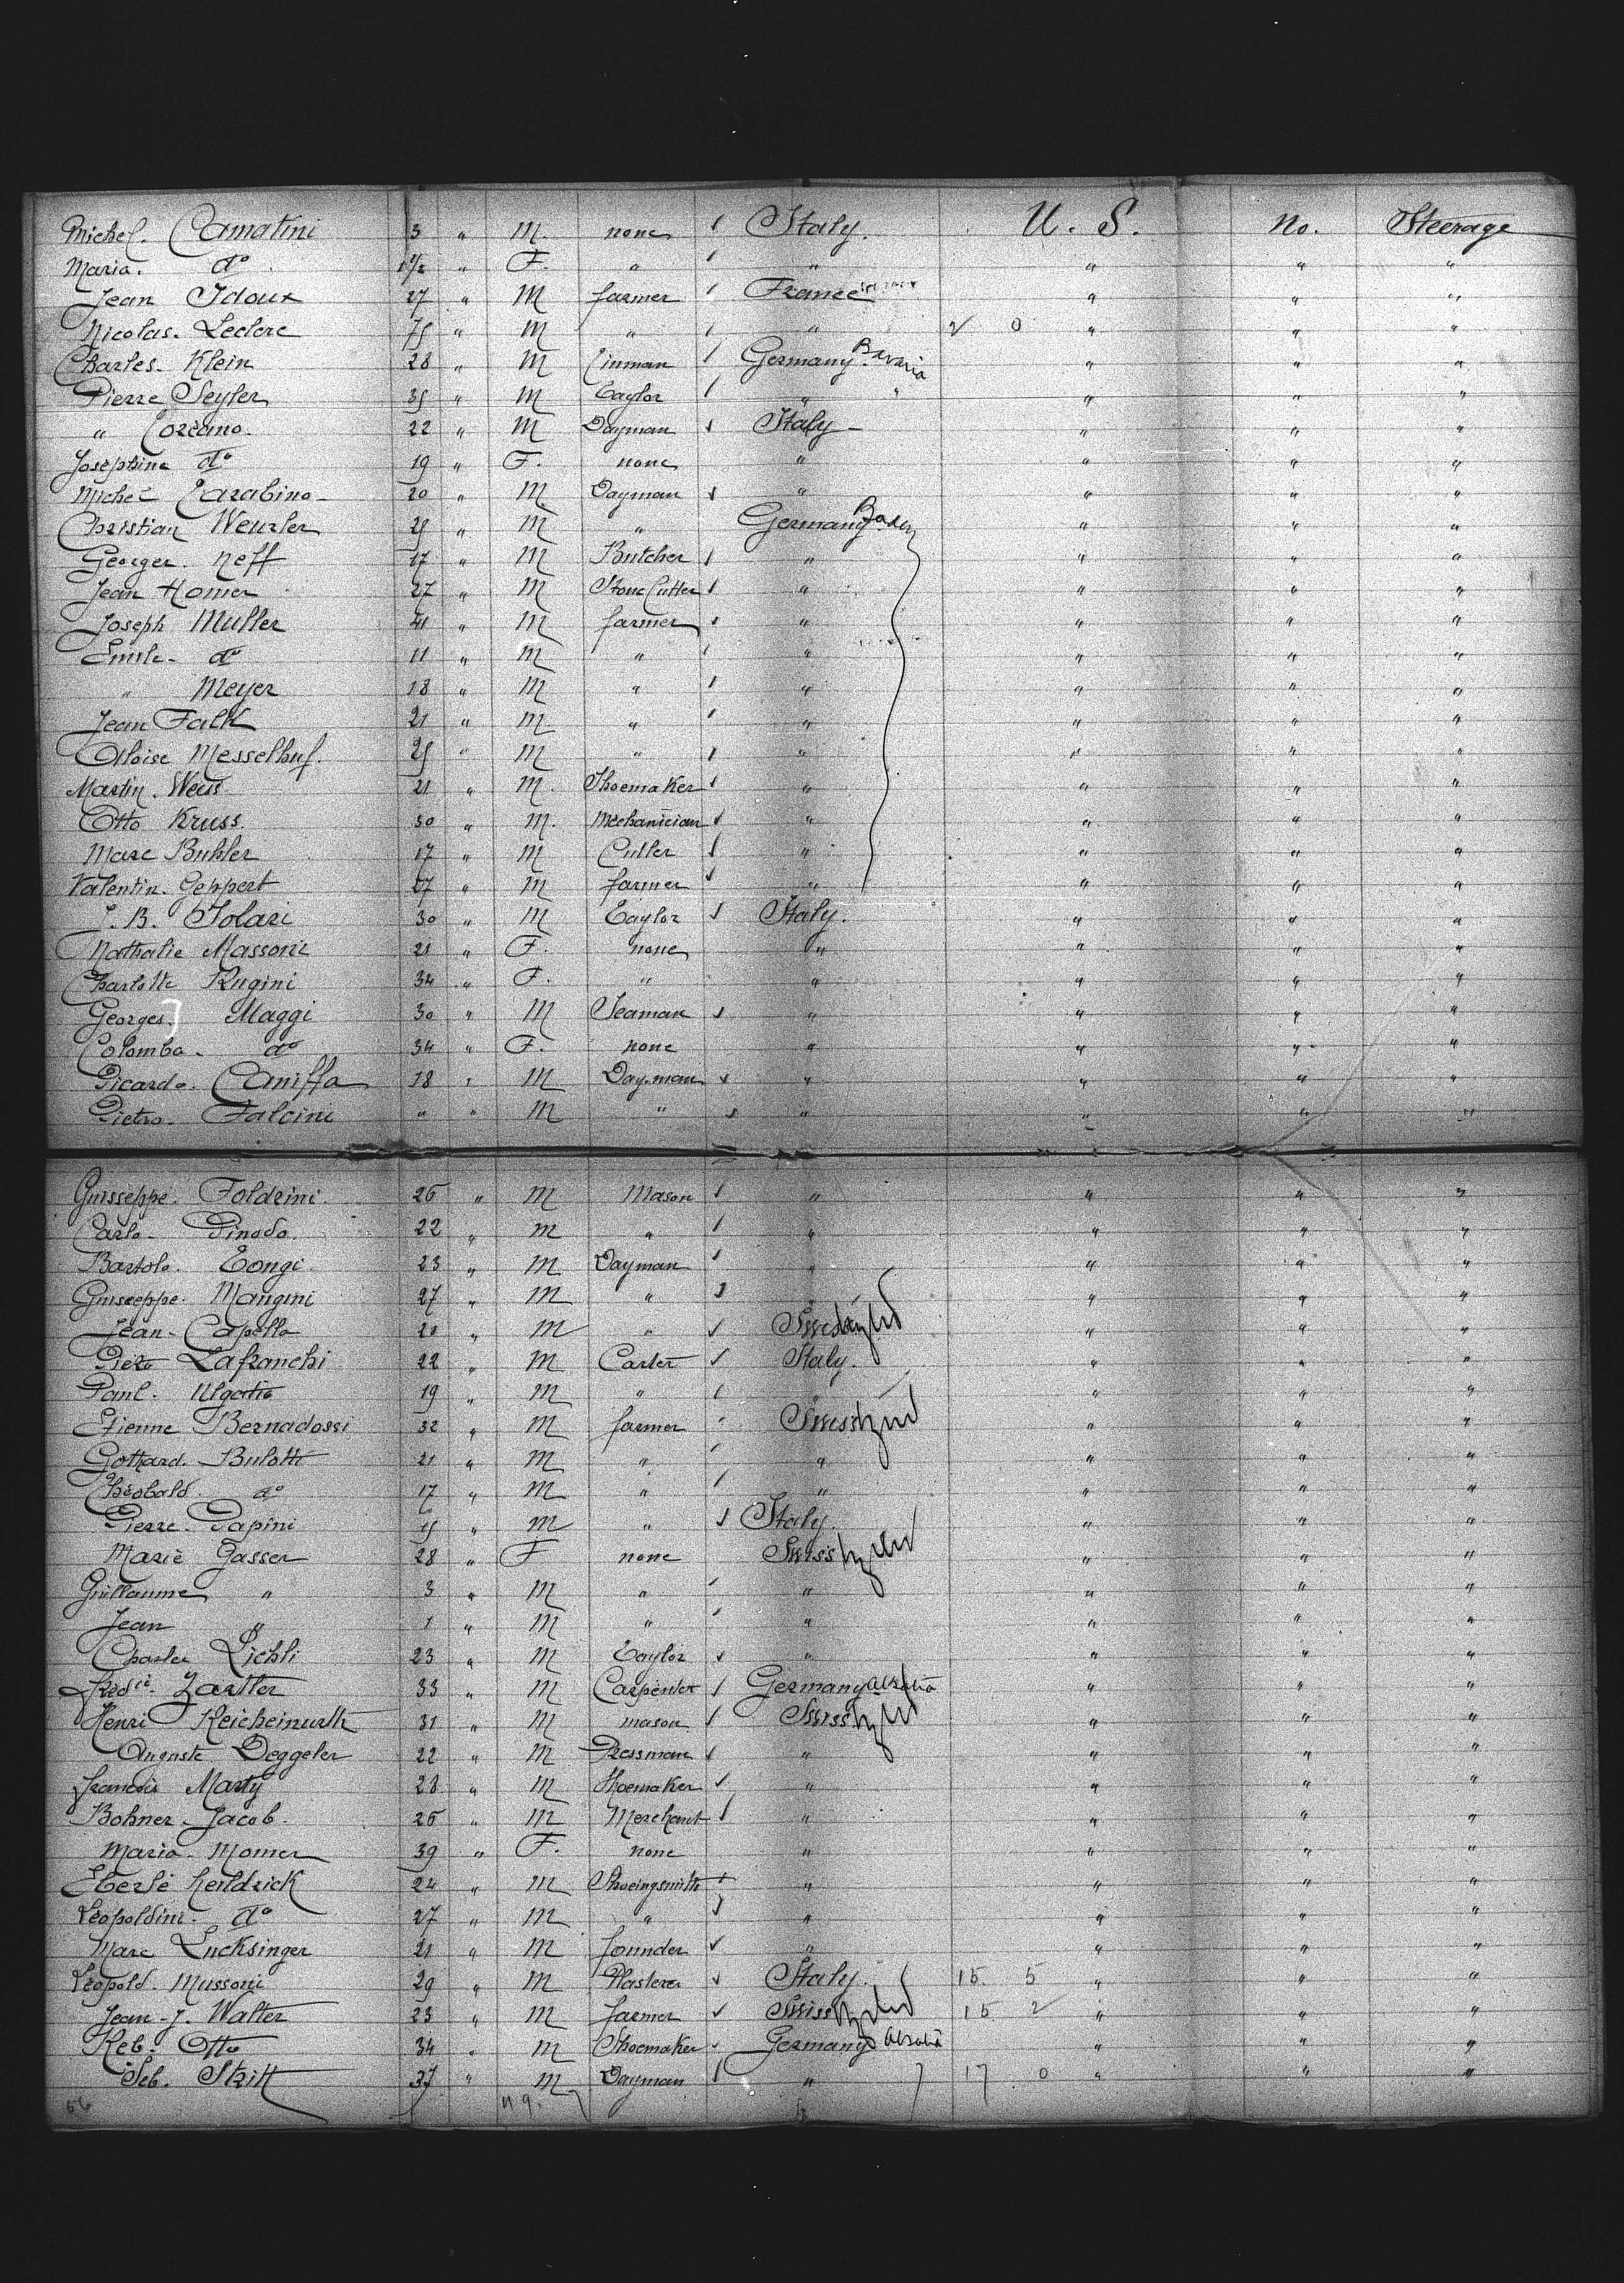 Michel. Camatini 3 " M. none Italy. U. S. No. Steerage
Maria. do 1 1/2 " F. " " " " "
Jean Idoux 27 " M farmer France " " "
Nicolas. Leclere 75 " M " " 2 0 " " "
Charles. Klein 28 " M Germany Bavaria " " "
Pierre Seyler 35 " M Taylor " " " " "
" Corcano. 22 " M Dayman Italy - " " "
Josephine do 19 " F. none " " " "
Michel Carabino 20 " M Dayman " " " "
Christian Wenzler 25 " M " Germany Baden " " "
Georger. Neff 17 " M Butcher " " " "
Jean Homer 27 " M Stone Cutter " " " "
Joseph Muller 41 " M farmer " " " "
Emile. do 11 " M " " " " "
" Meyer 18 " M " " " " "
Jean Falk 21 " M " " " " "
Aloise Messelhuf. 25 " M " " " " "
Martin. Weis 21 " M. Shoemaker " " " "
Otto Kruss. 30 " M. Mechanician " " " "
Marc Buhler 17 " M Cutler " " " "
Valentin. Geppert 27 " M farmer " " " "
J. B. Solari 30 " M Taylor Italy. " " "
Nathalie Massoni 21 " F. none " " " "
Charlotte Rugini 34 " F. " " " " "
Georges. Maggi 30 " M Seaman " " " "
Colomba. do 34 " F. none " " " "
Picardo. Caniffa 18 " M Dayman " " " "
Pietro. Falcini " " M " " " " "
Guisseppe. Foldrini. 26 " M Mason " " " "
Carlo. Pinodo. 22 " M " " " " "
Bartolo. Tongi. 23 " M Dayman " " " "
Guiseppe. Mangini 27 " M " " " " "
Jean. Capella 20 " M " " " "
Pietro Lafranchi 22 " M Carter Italy. " " "
Paul. 19 " M " " " " "
Etienne Bernadossi 32 " M farmer " " "
Gothard. Bulotti 21 " M " " " " "
Théobald. do 17 " M " " " " "
Pierre. Papini " M " Italy. " " "
Marie Gasser 28 " F none " " "
Guillaume " 3 " M " " " " "
Jean " 1 " M " " " " "
Charles Lichli 23 " M Taylor " " " "
Fredic. Zartler 33 " M Carpenter Germany Alsatia " " "
Henri Reicheinurth 31 " M mason " " "
Auguste Deggeler 22 " M Pressman " " " "
francois Marty 28 " M Shoemaker " " " "
Bohner. Jacob. 26 " M Merchant " " " "
Maria. Momer 39 " F. none " " " "
Eberlé Kendrick 24 " M Shoeingsmith " " " "
Léopoldini. do 27 " M " " " " "
Marc Lucksinger 21 " M founder " " " "
Léopold. Mussoni 29 " M Plasterer Italy. 15. 5 " " "
Jean. J. Walter 23 " M farmer 15 2 " " "
Keb. Otto 34 " M Shoemaker Germany Alsatia " " "
Seb. Stritt 37 " M Dayman " 17 0 " " "
56 49.